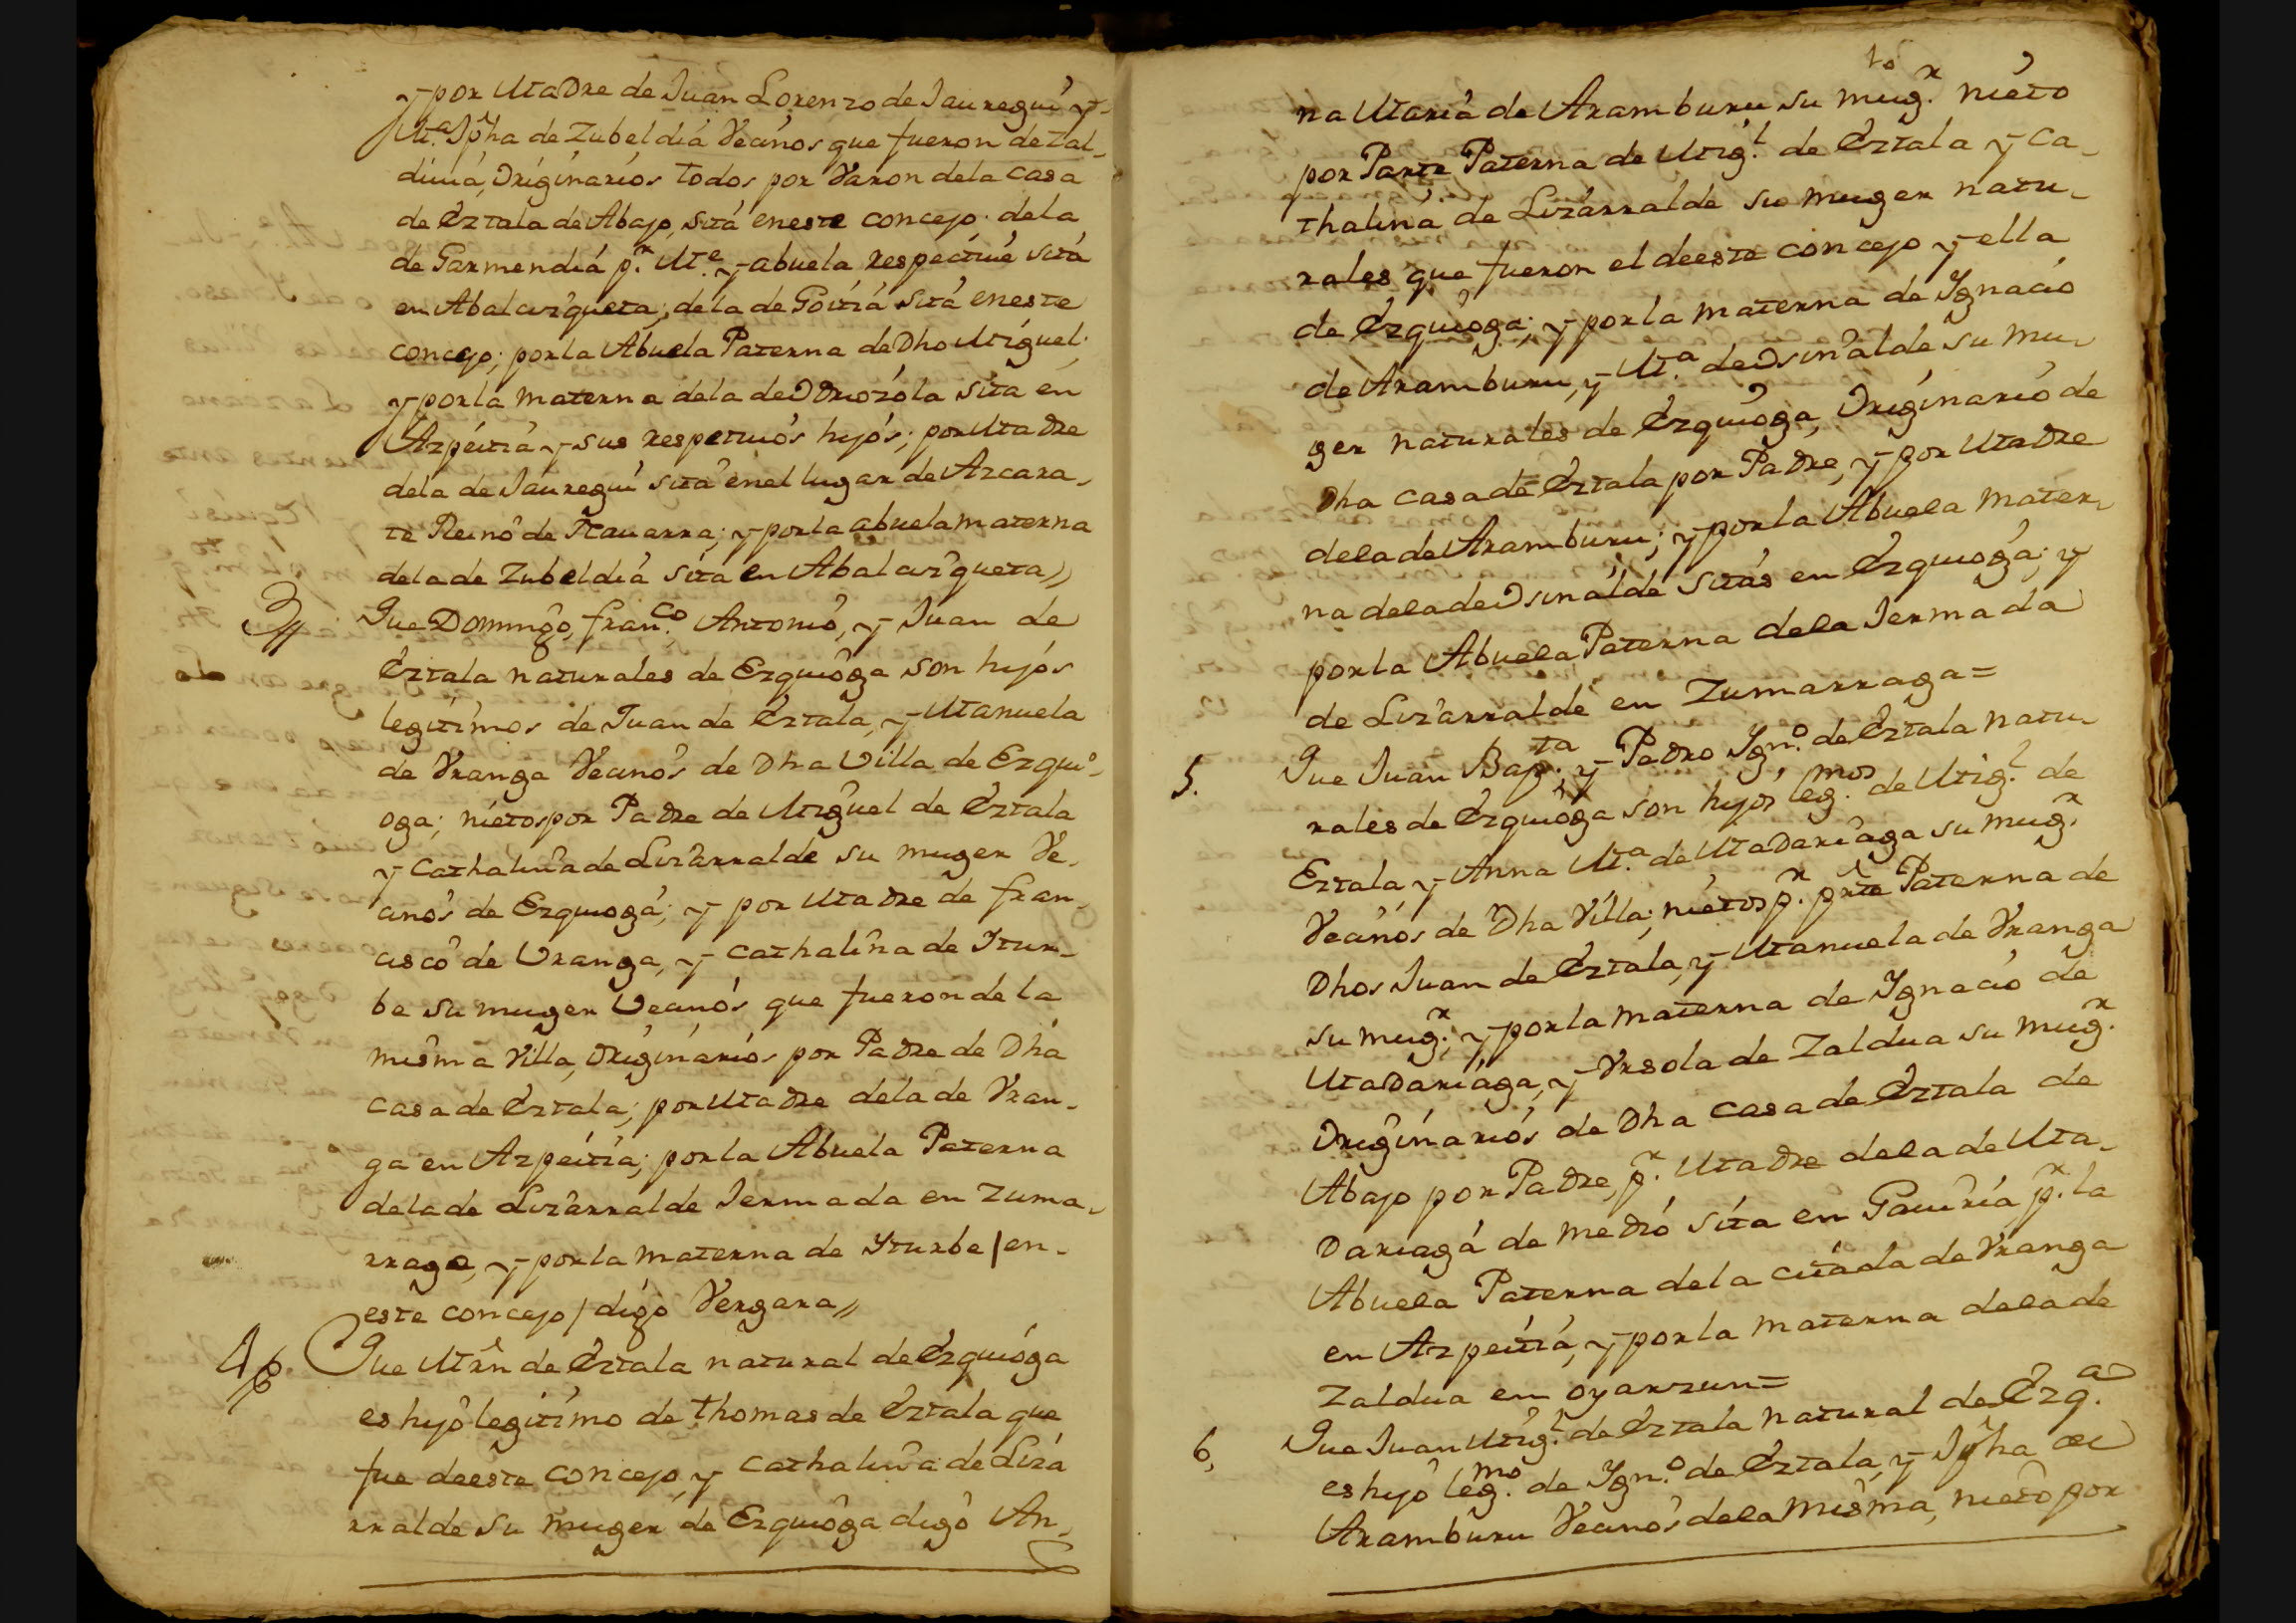 y por Madre de Juan Lorenzo de Jauregui y
M.ª Jpha de Zubeldia Vecinos que fueron de Zal-
divia, Originarios todos por Varon dela casa
de Eztala de Abajo, sita eneste concejo. dela
de Garmendia p.r M.e y abuela respective sita
en Abalcizqueta; dela de Goitia sita eneste
concejo; porla Abuela Paterna de Dho Miguel;
y porla materna dela de Odriozola sita en
Azpeitia y sus respectivos hijos; por Madre
dela de Jauregui sita enel lugar de Azcara-
te Reino de Navarra; y porla abuela materna
dela de Zubeldia sita en Abalcizqueta//
3// Que Domingo, fran.co Antonio, y Juan de
Eztala naturales de Ezquioga son hijos
legitimos de Juan de Eztala, y Manuela
de Vranga Vecinos de Dha Villa de Ezqui-
oga; nietos por Padre de Miguel de Eztala
y Cathalina de Lizarralde su muger Ve-
cinos de Ezquioga; y por Madre de fran-
cisco de Vranga, y Cathalina de Ytur-
be su muger Vecinos que fueron de la
misma Villa, Originarios por Padre de Dha
casa de Eztala; por Madre dela de Vran-
ga en Azpeitia; porla Abuela Paterna
dela de Lizarralde Jermada en Zuma-
rraga, y porla materna de Yturbe / en-
este concejo / digo Vergara//
4 Que Mrn de Eztala natural de Ezquioga
es hijo legitimo de thomas de Eztala que
fue deeste concejo, y Cathalina de Liza
rralde su muger de Ezquioga digo An-
10
na Maria de Aramburu su mug.r nieto
por Parte Paterna de Mig.l de Eztala y Ca-
thalina de Lizarralde su muger natu-
rales que fueron el deeste concejo y ella
de Ezquioga; y porla materna de Ygnacio
de Aramburu, y M.ª de Osinalde su mu-
ger naturales de Ezquioga, Originario de
Dha casa de Eztala por Padre, y por Madre
dela de Aramburu; y porla Abuela mater-
na dela de Osinalde sitas en Ezquioga; y
porla Abuela Paterna dela Jermada
de Lizarralde en Zumarraga=
5. Que Juan Bap.ta y Pedro Ygn.o de Eztala natu-
rales de Ezquioga son hijos leg.mos de Mig.l de
Eztala, y Anna M.ª de Madariaga su mug.r
Vecinos de Dha Villa; nietos p.r pte Paterna de
Dhos Juan de Eztala, y Manuela de Vranga
su mug.r; y porla materna de Ygnacio de
Madariaga, y Vrsola de Zaldua su mug.r
Originarios de Dha casa de Eztala de
Abajo por Padre, p.r Madre dela de Ma-
dariaga de medio sita en Gaviria, p.r la
Abuela Paterna dela citada de Vranga
en Azpeitia, y porla materna dela de
Zaldua en oyarzun=
6, Que Juan Mig.l de Eztala natural de Ezq.a
es hijo leg.mo de Ygn.o de Eztala, y Jpha de
Aramburu Vecinos dela misma, nieto por